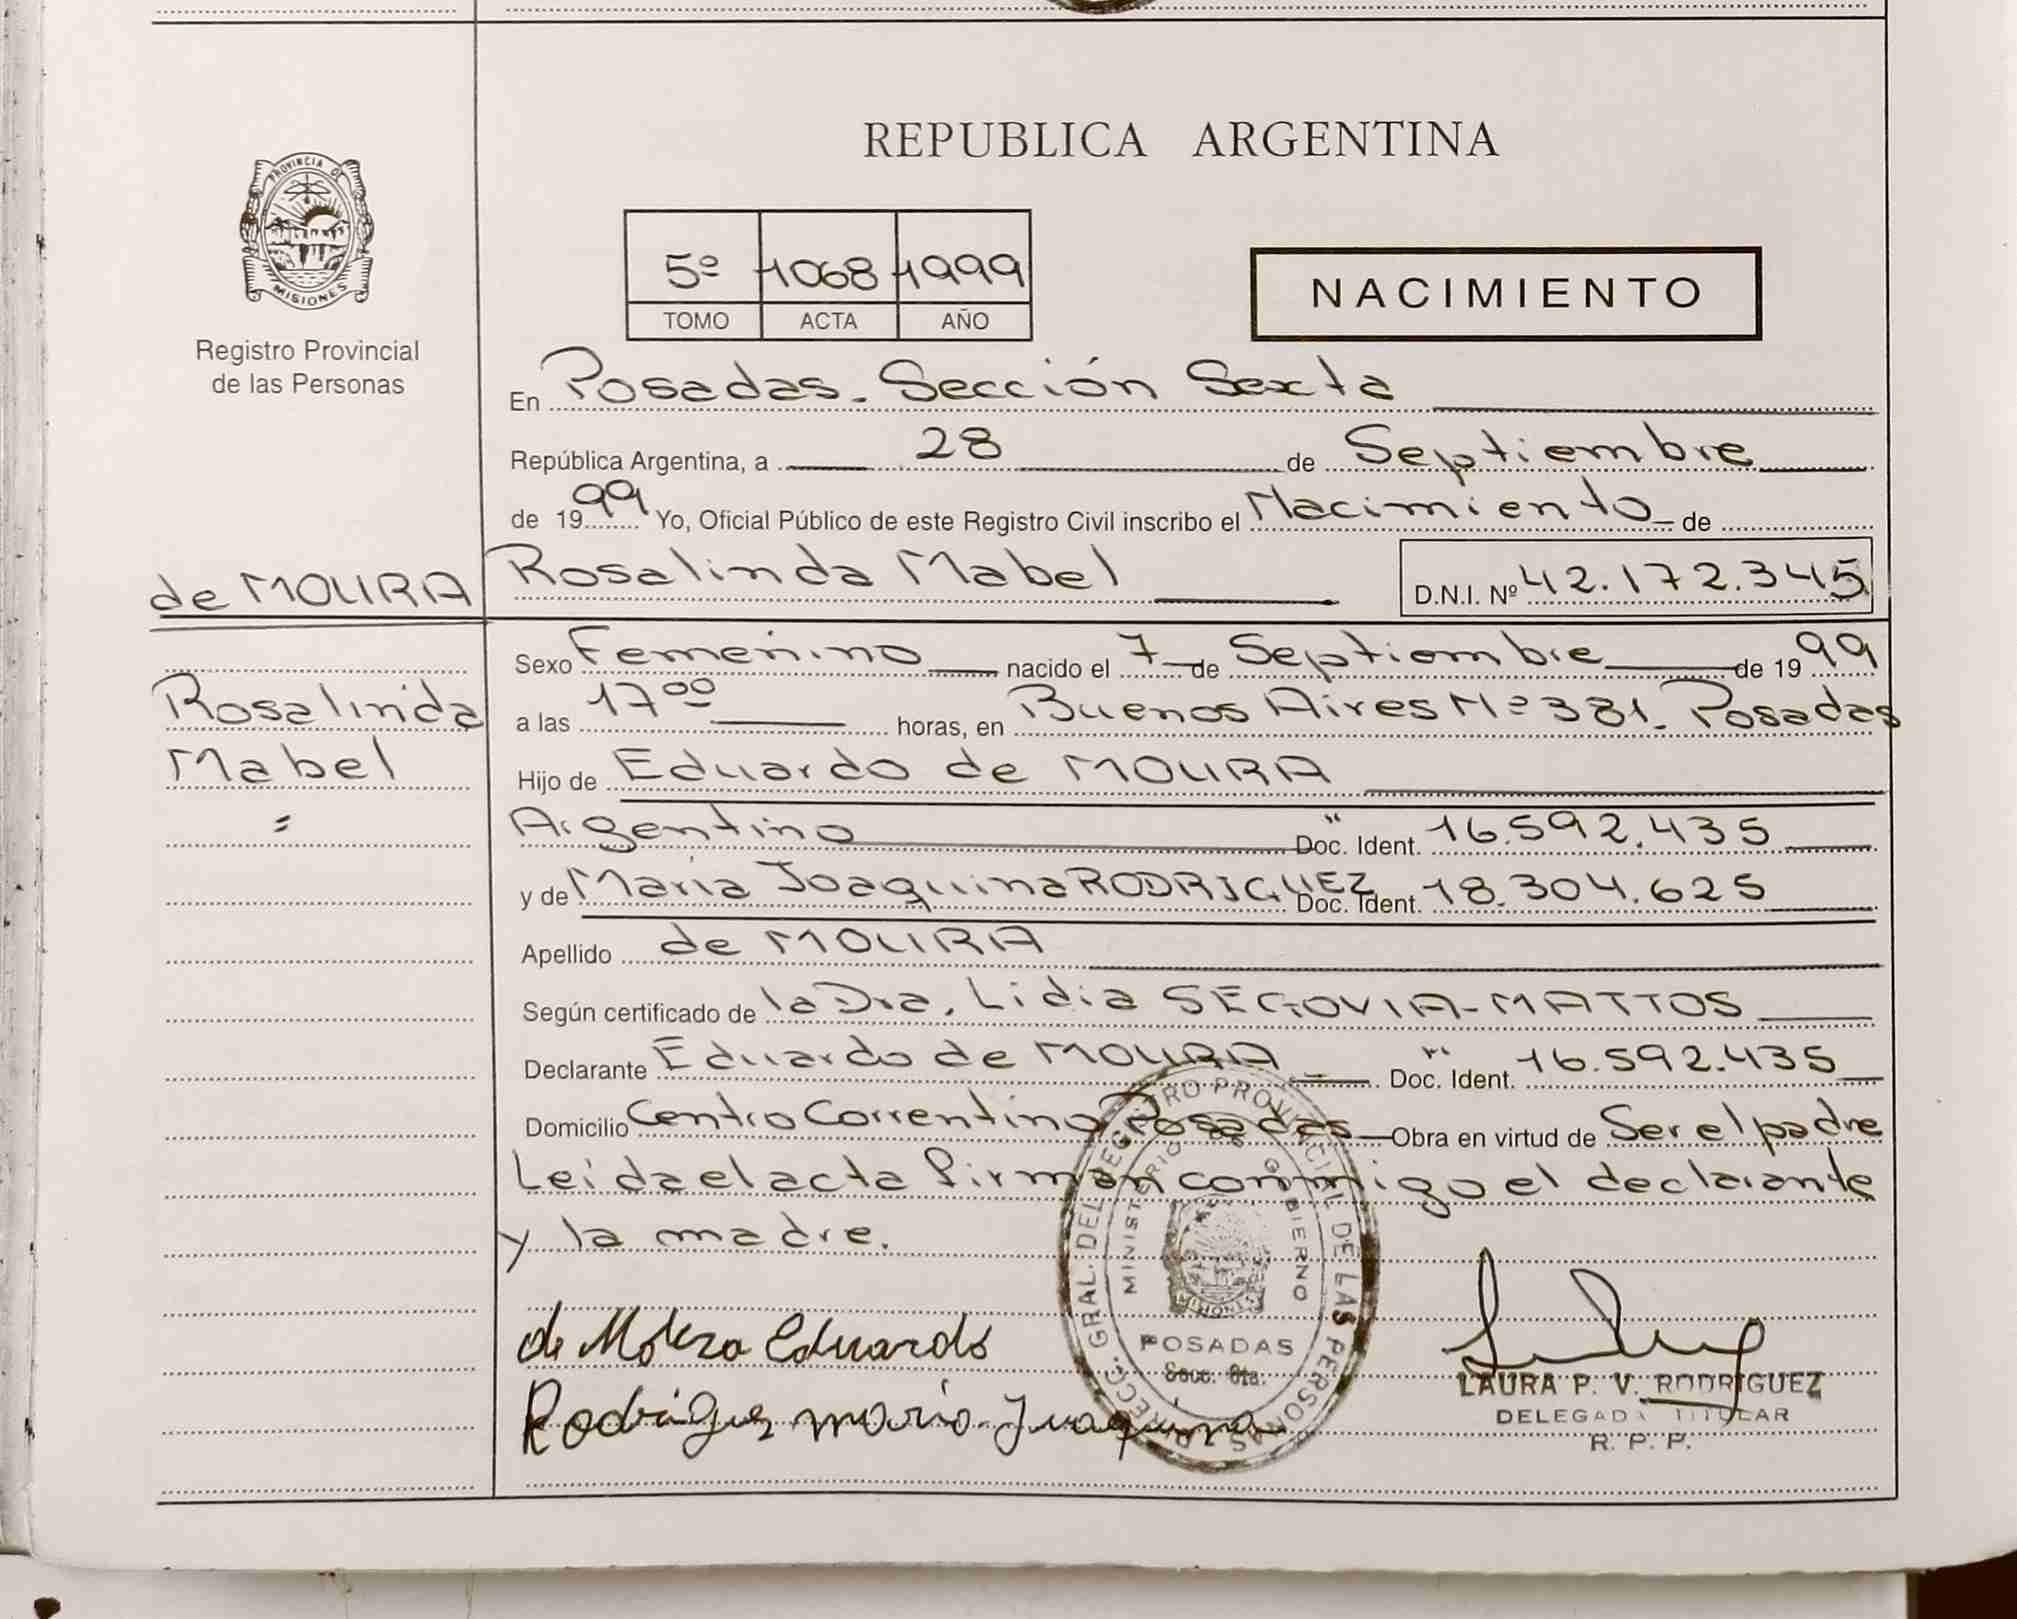 REPUBLICA ARGENTINA
PROVINCIA DE
MISIONES
Registro Provincial
de las Personas
5º 1068 1999
TOMO ACTA AÑO
NACIMIENTO
En Posadas. Sección Sexta
República Argentina, a 28 de Septiembre
de 1999 Yo, Oficial Público de este Registro Civil inscribo el Nacimiento de
de MOURA
Rosalinda Mabel D.N.I. Nº 42.172.345
Rosalinda
Mabel
=
Sexo Femenino nacido el 7 de Septiembre de 1999
a las 17⁰⁰ horas, en Buenos Aires Nº 381. Posadas
Hijo de Eduardo de MOURA
Argentino Doc. Ident. 16.592.435
y de María Joaquina RODRIGUEZ Doc. Ident. 18.304.625
Apellido de MOURA
Según certificado de la Dra. Lidia SEGOVIA-MATTOS
Declarante Eduardo de MOURA Doc. Ident. 16.592.435
Domicilio Centro Correntino Posadas Obra en virtud de Ser el padre
Leída el acta firman conmigo el declarante
y la madre.
DIRECC. GRAL. DEL REGISTRO PROVINCIAL DE LAS PERSONAS
MINISTERIO DE GOBIERNO
MISIONES
POSADAS
Secc. 6ta.
de Moura Eduardo
Rodriguez maria Juaquina
LAURA P. V. RODRIGUEZ
DELEGADA TITULAR
R. P. P.